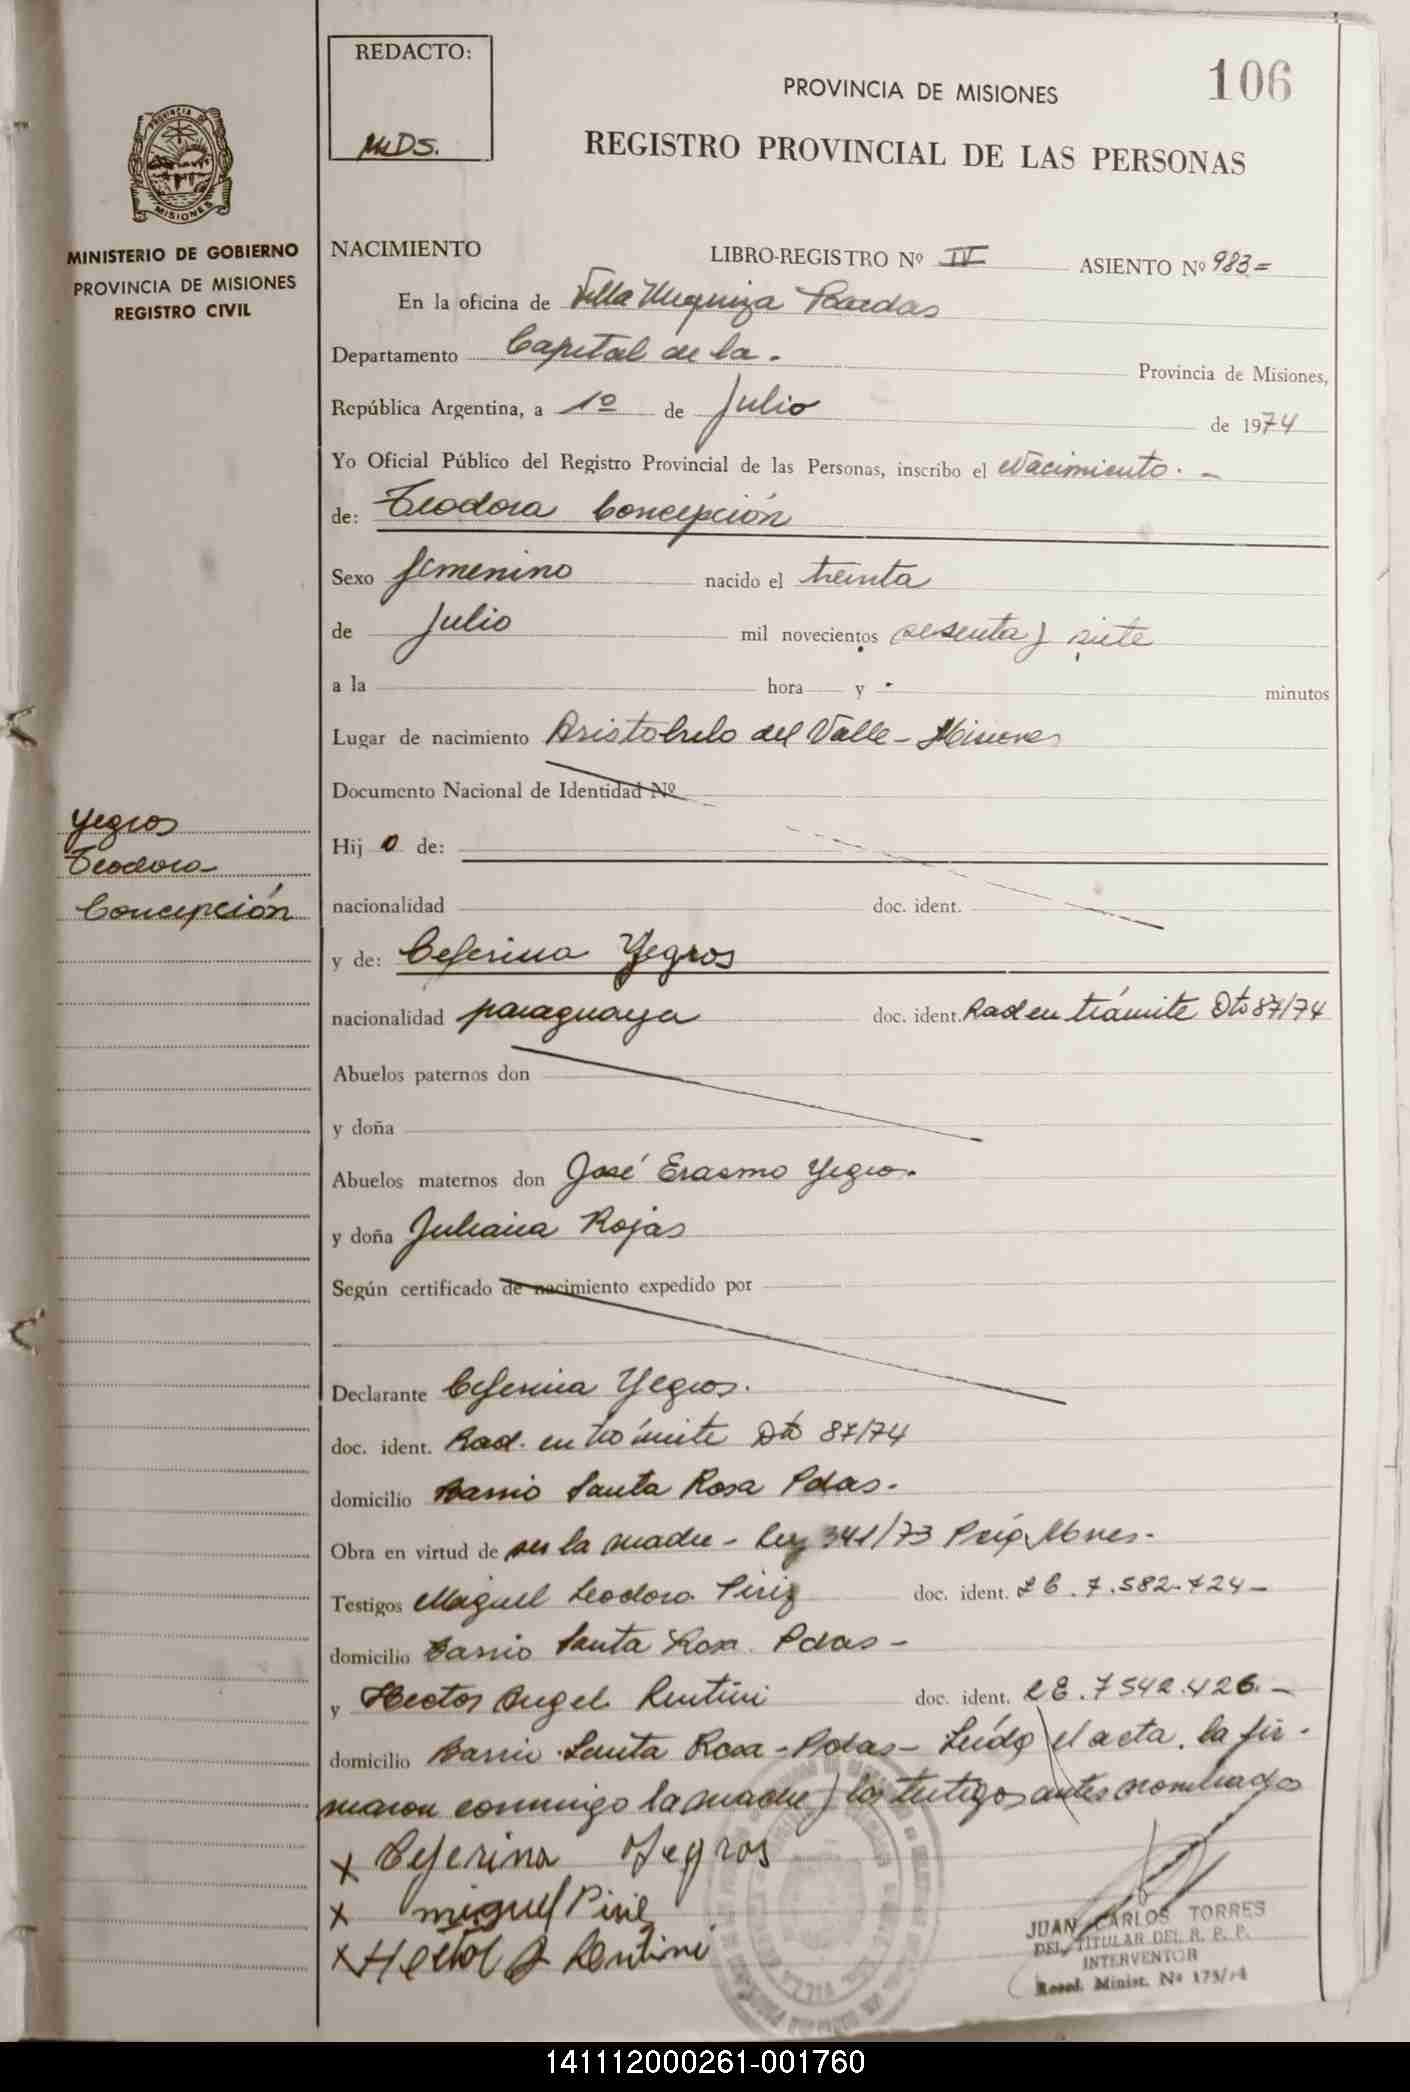 REDACTO:
MdDS.
106
PROVINCIA DE MISIONES
REGISTRO PROVINCIAL DE LAS PERSONAS
PROVINCIA DE
MISIONES
MINISTERIO DE GOBIERNO
PROVINCIA DE MISIONES
REGISTRO CIVIL
NACIMIENTO LIBRO-REGISTRO Nº IV ASIENTO Nº 983=
En la oficina de Villa Urquiza Posadas
Departamento Capital de la. Provincia de Misiones,
República Argentina, a 1º de Julio de 1974
Yo Oficial Público del Registro Provincial de las Personas, inscribo el Nacimiento. -
de: Teodora Concepción
Sexo femenino nacido el treinta
de Julio mil novecientos sesenta y siete
a la hora y minutos
Lugar de nacimiento Aristobulo del Valle - Misiones
Documento Nacional de Identidad Nº
Yegros
Teodora
Concepción
Hij o de:
nacionalidad doc. ident.
y de: Ceferina Yegros
nacionalidad paraguaya doc. ident. Rad en trámite Dto 87/74
Abuelos paternos don
y doña
Abuelos maternos don José Erasmo Yegros.
y doña Juliana Rojas
Según certificado de nacimiento expedido por
Declarante Ceferina Yegros.
doc. ident. Rad. en trámite Dto 87/74
domicilio Barrio Santa Rosa Pdas.
Obra en virtud de ser la madre - Ley 341/73 Mnes.-
Testigos Miguel Teodoro Piriz doc. ident. 7.582.724-
domicilio Barrio Santa Rosa. Pdas -
y Hector Angel Rentini doc. ident. 7542.426.-
domicilio Barrio Santa Rosa - Pdas - Leída el acta, la fir-
maron conmigo la madre y los testigos antes nombrados
x Ceferina Yegros
x miguel Piriz
x Hector A Rentini
JUAN CARLOS TORRES
DEL. TITULAR DEL R. P. P.
INTERVENTOR
Resol. Minist. Nº 173/74
141112000261-001760